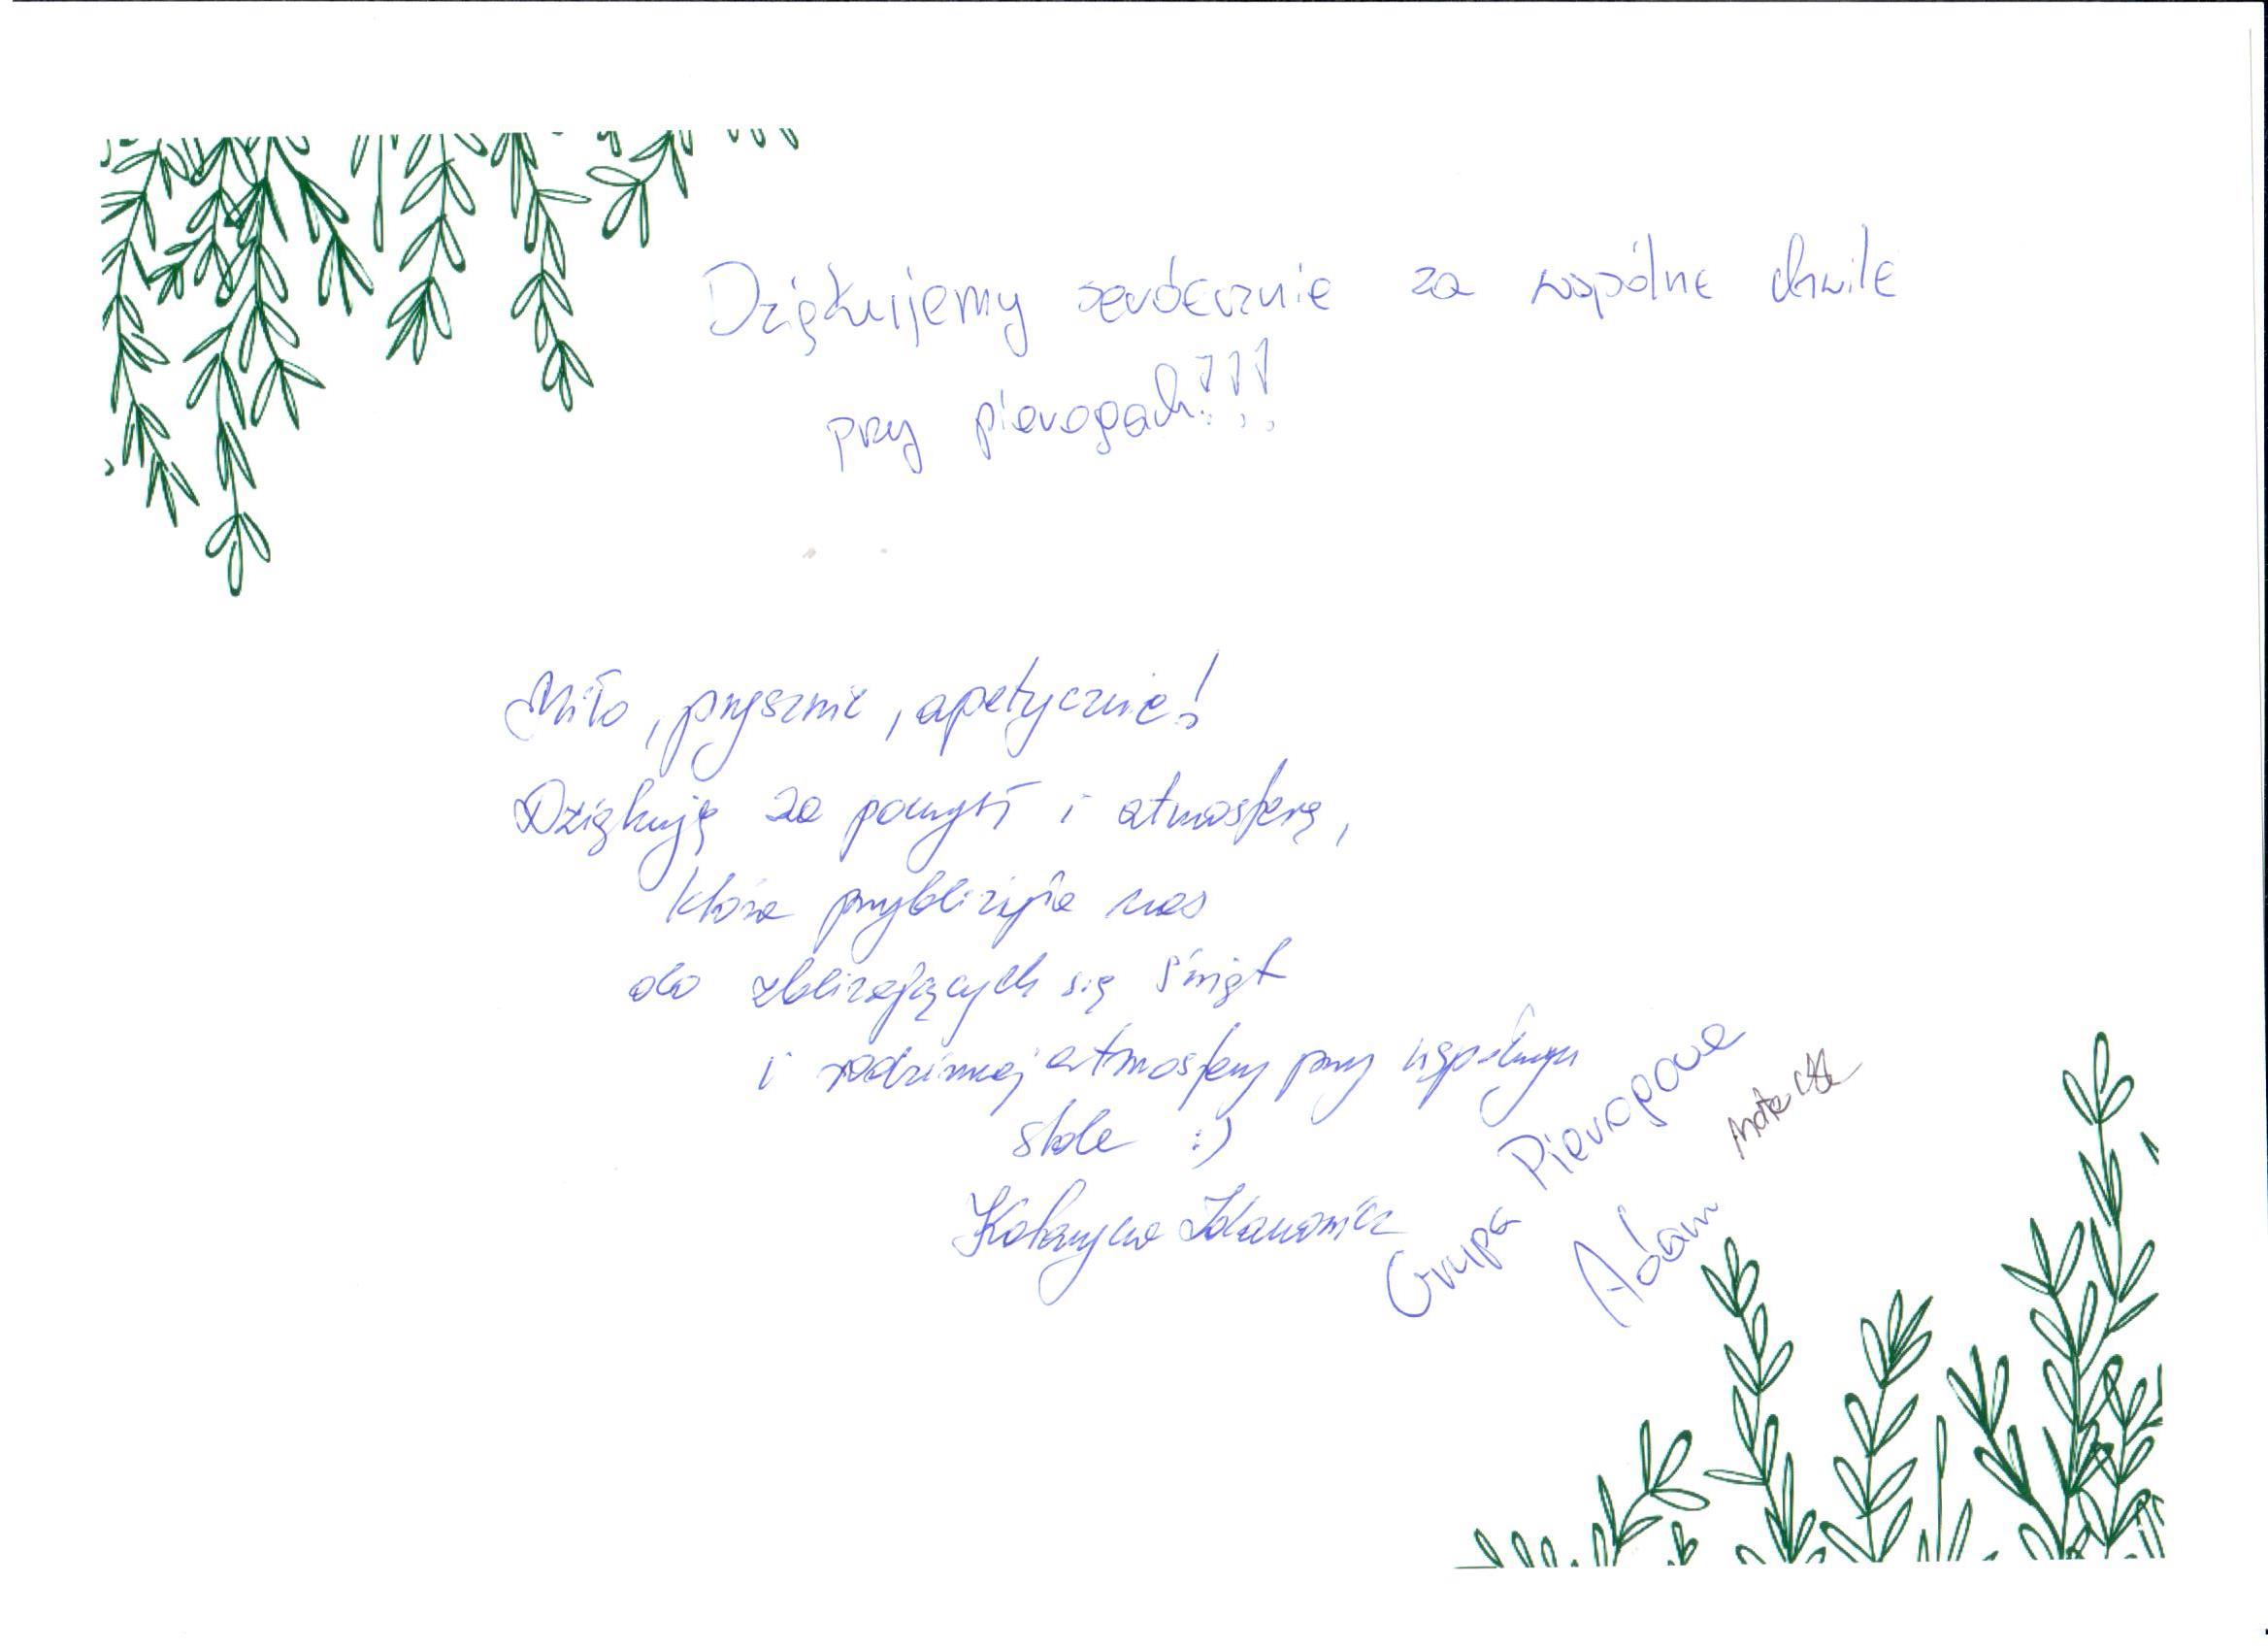 Dziękujemy serdecznie za wspólne chwile
przy pierogach!!!
Miło, pysznie, apetycznie!
Dziękuję za pomysł i atmosferę,
która przybliżyła nas
do zbliżających się Świąt
i rodzinnej atmosfery przy wspólnym
stole :)
Katarzyna
Grupa Pierogowa
Adam